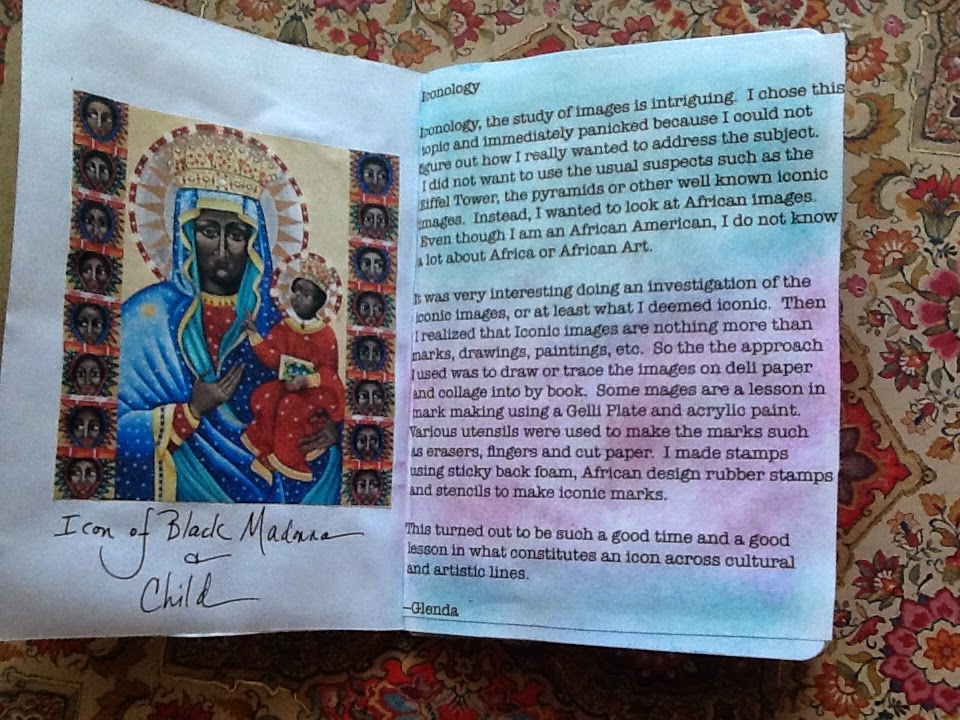 Icon of Black Madonna
&
Child
Iconology
Iconology, the study of images is intriguing. I chose this
topic and immediately panicked because I could not
figure out how I really wanted to address the subject.
I did not want to use the usual suspects such as the
Eiffel Tower, the pyramids or other well known iconic
images. Instead, I wanted to look at African images.
Even though I am an African American, I do not know
a lot about Africa or African Art.
It was very interesting doing an investigation of the
iconic images, or at least what I deemed iconic. Then
I realized that Iconic images are nothing more than
marks, drawings, paintings, etc. So the the approach
I used was to draw or trace the images on deli paper
and collage into by book. Some mages are a lesson in
mark making using a Gelli Plate and acrylic paint.
Various utensils were used to make the marks such
as erasers, fingers and cut paper. I made stamps
using sticky back foam, African design rubber stamps
and stencils to make iconic marks.
This turned out to be such a good time and a good
lesson in what constitutes an icon across cultural
and artistic lines.
—Glenda